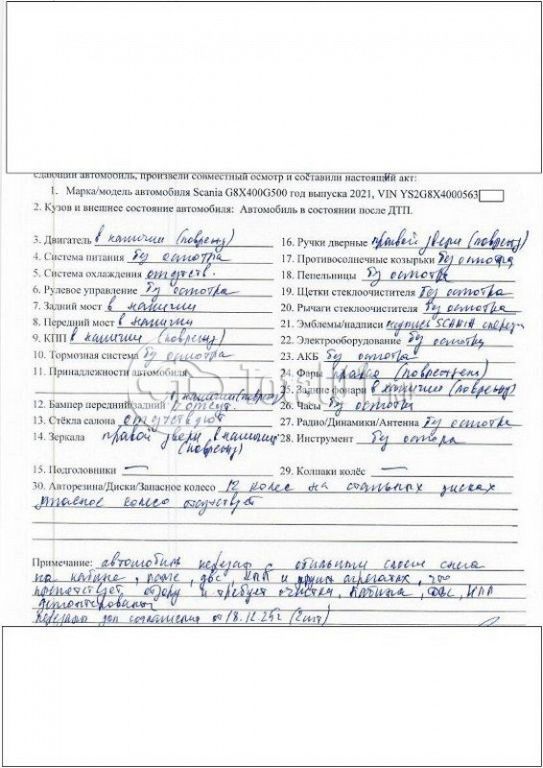 сдающий автомобиль, произвели совместный осмотр и составили настоящий акт:
1. Марка/модель автомобиля Scania G8X400G500 год выпуска 2021, VIN YS2G8X4000563
2. Кузов и внешнее состояние автомобиля: Автомобиль в состоянии после ДТП.
3. Двигатель в наличии (поврежд)
4. Система питания без осмотра
5. Система охлаждения отсутств.
6. Рулевое управление без осмотра
7. Задний мост в наличии
8. Передний мост в наличии
9. КПП в наличии (поврежд)
10. Тормозная система без осмотра
11. Принадлежности автомобиля
12. Бампер передний/задний в наличии (поврежд) / отсут.
13. Стёкла салона отсутствуют
14. Зеркала правой двери в наличии (поврежд)
15. Подголовники —
16. Ручки дверные правой двери (поврежд)
17. Противосолнечные козырьки без осмотра
18. Пепельницы без осмотра
19. Щетки стеклоочистителя без осмотра
20. Рычаги стеклоочистителя без осмотра
21. Эмблемы/надписи SCANIA спереди
22. Электрооборудование без осмотра
23. АКБ без осмотра
24. Фары правая (поврежден)
25. Задние фонари в наличии (поврежд)
26. Часы без осмотра
27. Радио/Динамики/Антенна без осмотра
28. Инструмент без осмотра
29. Колпаки колёс —
30. Авторезина/Диски/Запасное колесо 12 колес на стальных дисках
запасное колесо отсутствует
Примечание: автомобиль передан с обильным слоем снега
на кабине, раме, двс, КПП и других агрегатах, что
препятствует обзору и требует очистки, Кабина, ДВС, КПП
демонтированы
Передано доп соглашение от 18.12.25г (2шт)